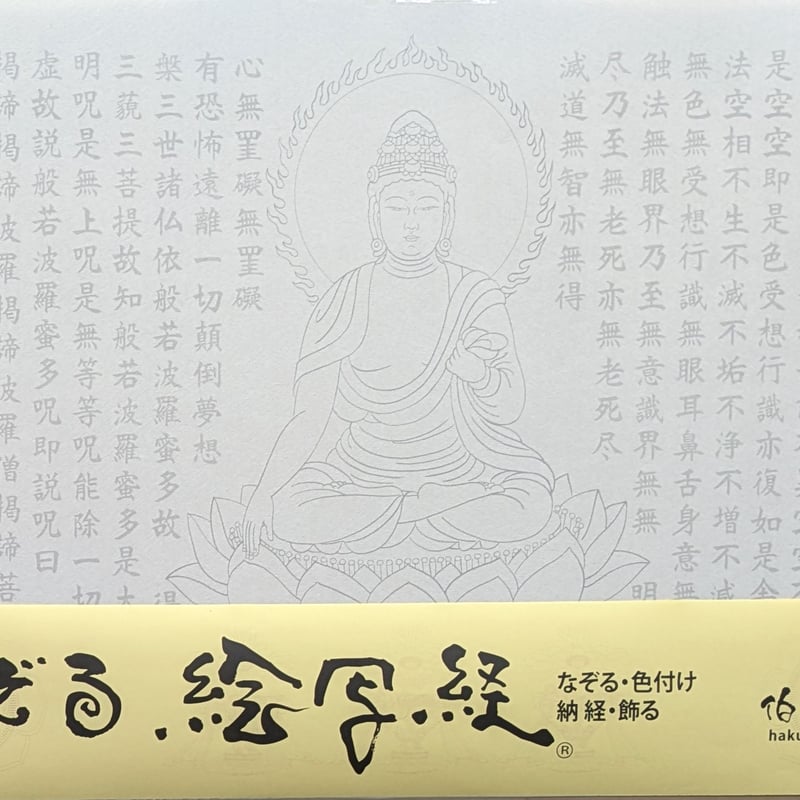 是空空即是色受想行識亦復如是舎
法空相不生不滅不垢不浄不増不減
無色無受想行識無眼耳鼻舌身意無
触法無眼界乃至無意識界無無明
尽乃至無老死亦無老死尽
滅道無智亦無得
心無罣礙無罣礙
有恐怖遠離一切顛倒夢想
槃三世諸仏依般若波羅蜜多故得
三藐三菩提故知般若波羅蜜多是大
明呪是無上呪是無等等呪能除一切
虚故説般若波羅蜜多呪即説呪曰
羯諦羯諦波羅羯諦波羅僧羯諦菩
ぞる 絵写経®
なぞる・色付け
納経・飾る
伯
haku